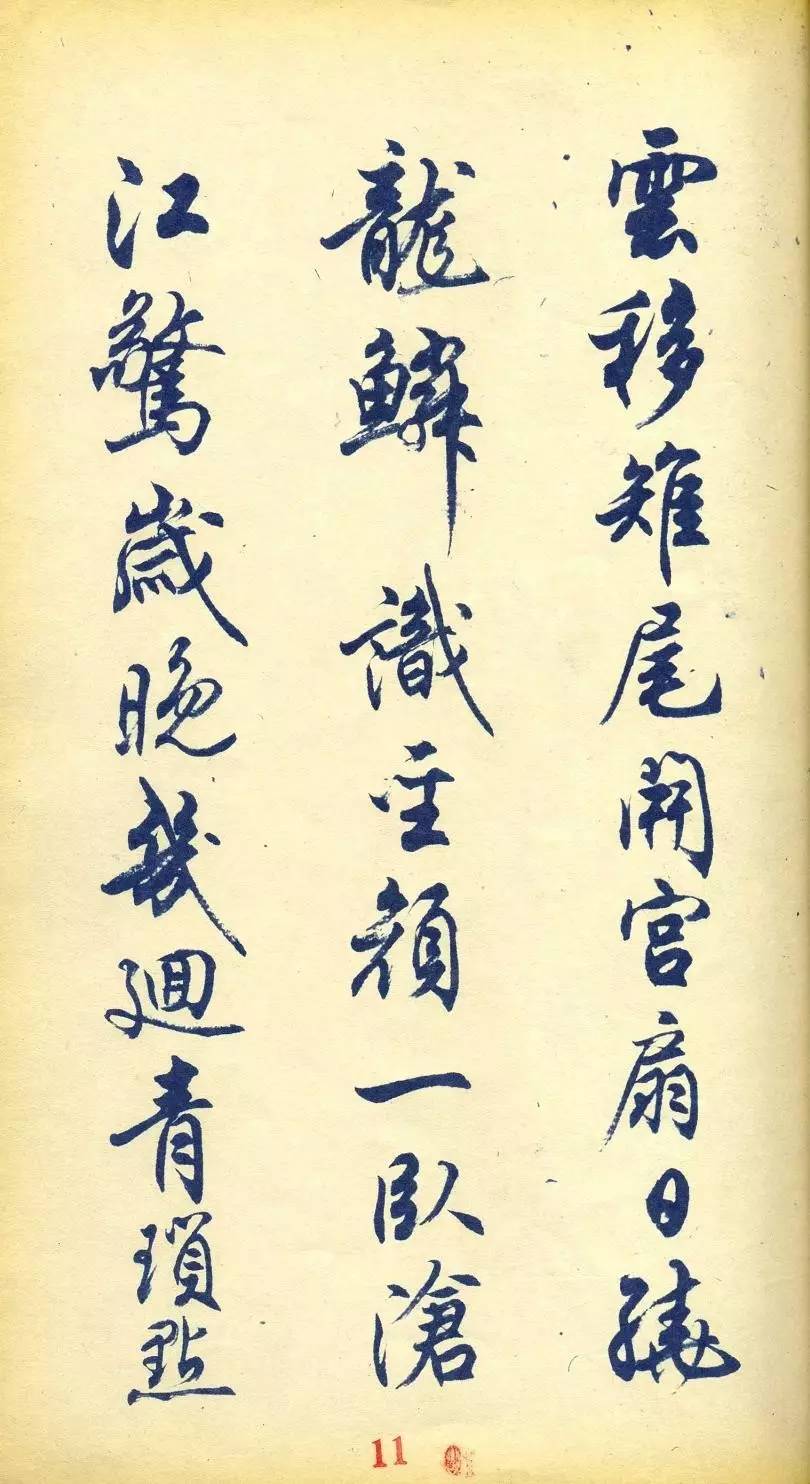 雲移雉尾開宫扇日繞
龍鱗識聖顔一臥滄
江驚歲晚幾迴青瑣點
11